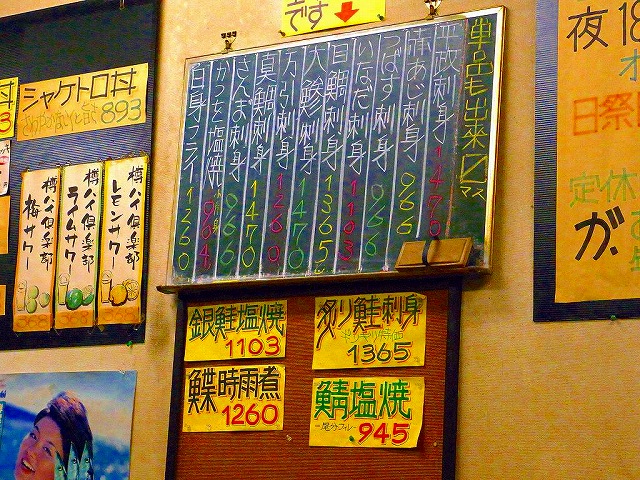 です
単品も出来〼
平政刺身 1470
縞あじ刺身 966
つばす刺身 966
いなだ刺身 1193
目鯛刺身 1365
大鯵刺身 1470
方々刺身 1260
真鯛刺身 1470
さんま刺身 966
かつを塩焼
白身フライ 1260
シャケトロ丼
893
樽ハイ倶楽部
レモンサワー
樽ハイ倶楽部
ライムサワー
樽ハイ倶楽部
梅サワー
銀鮭塩焼
1103
炙り鮭刺身
1365
鰈時雨煮
1260
鯖塩焼
945
夜18
日祭
定休
が